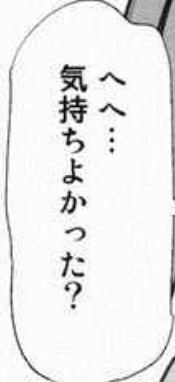 へへ…
気持ちよかった？